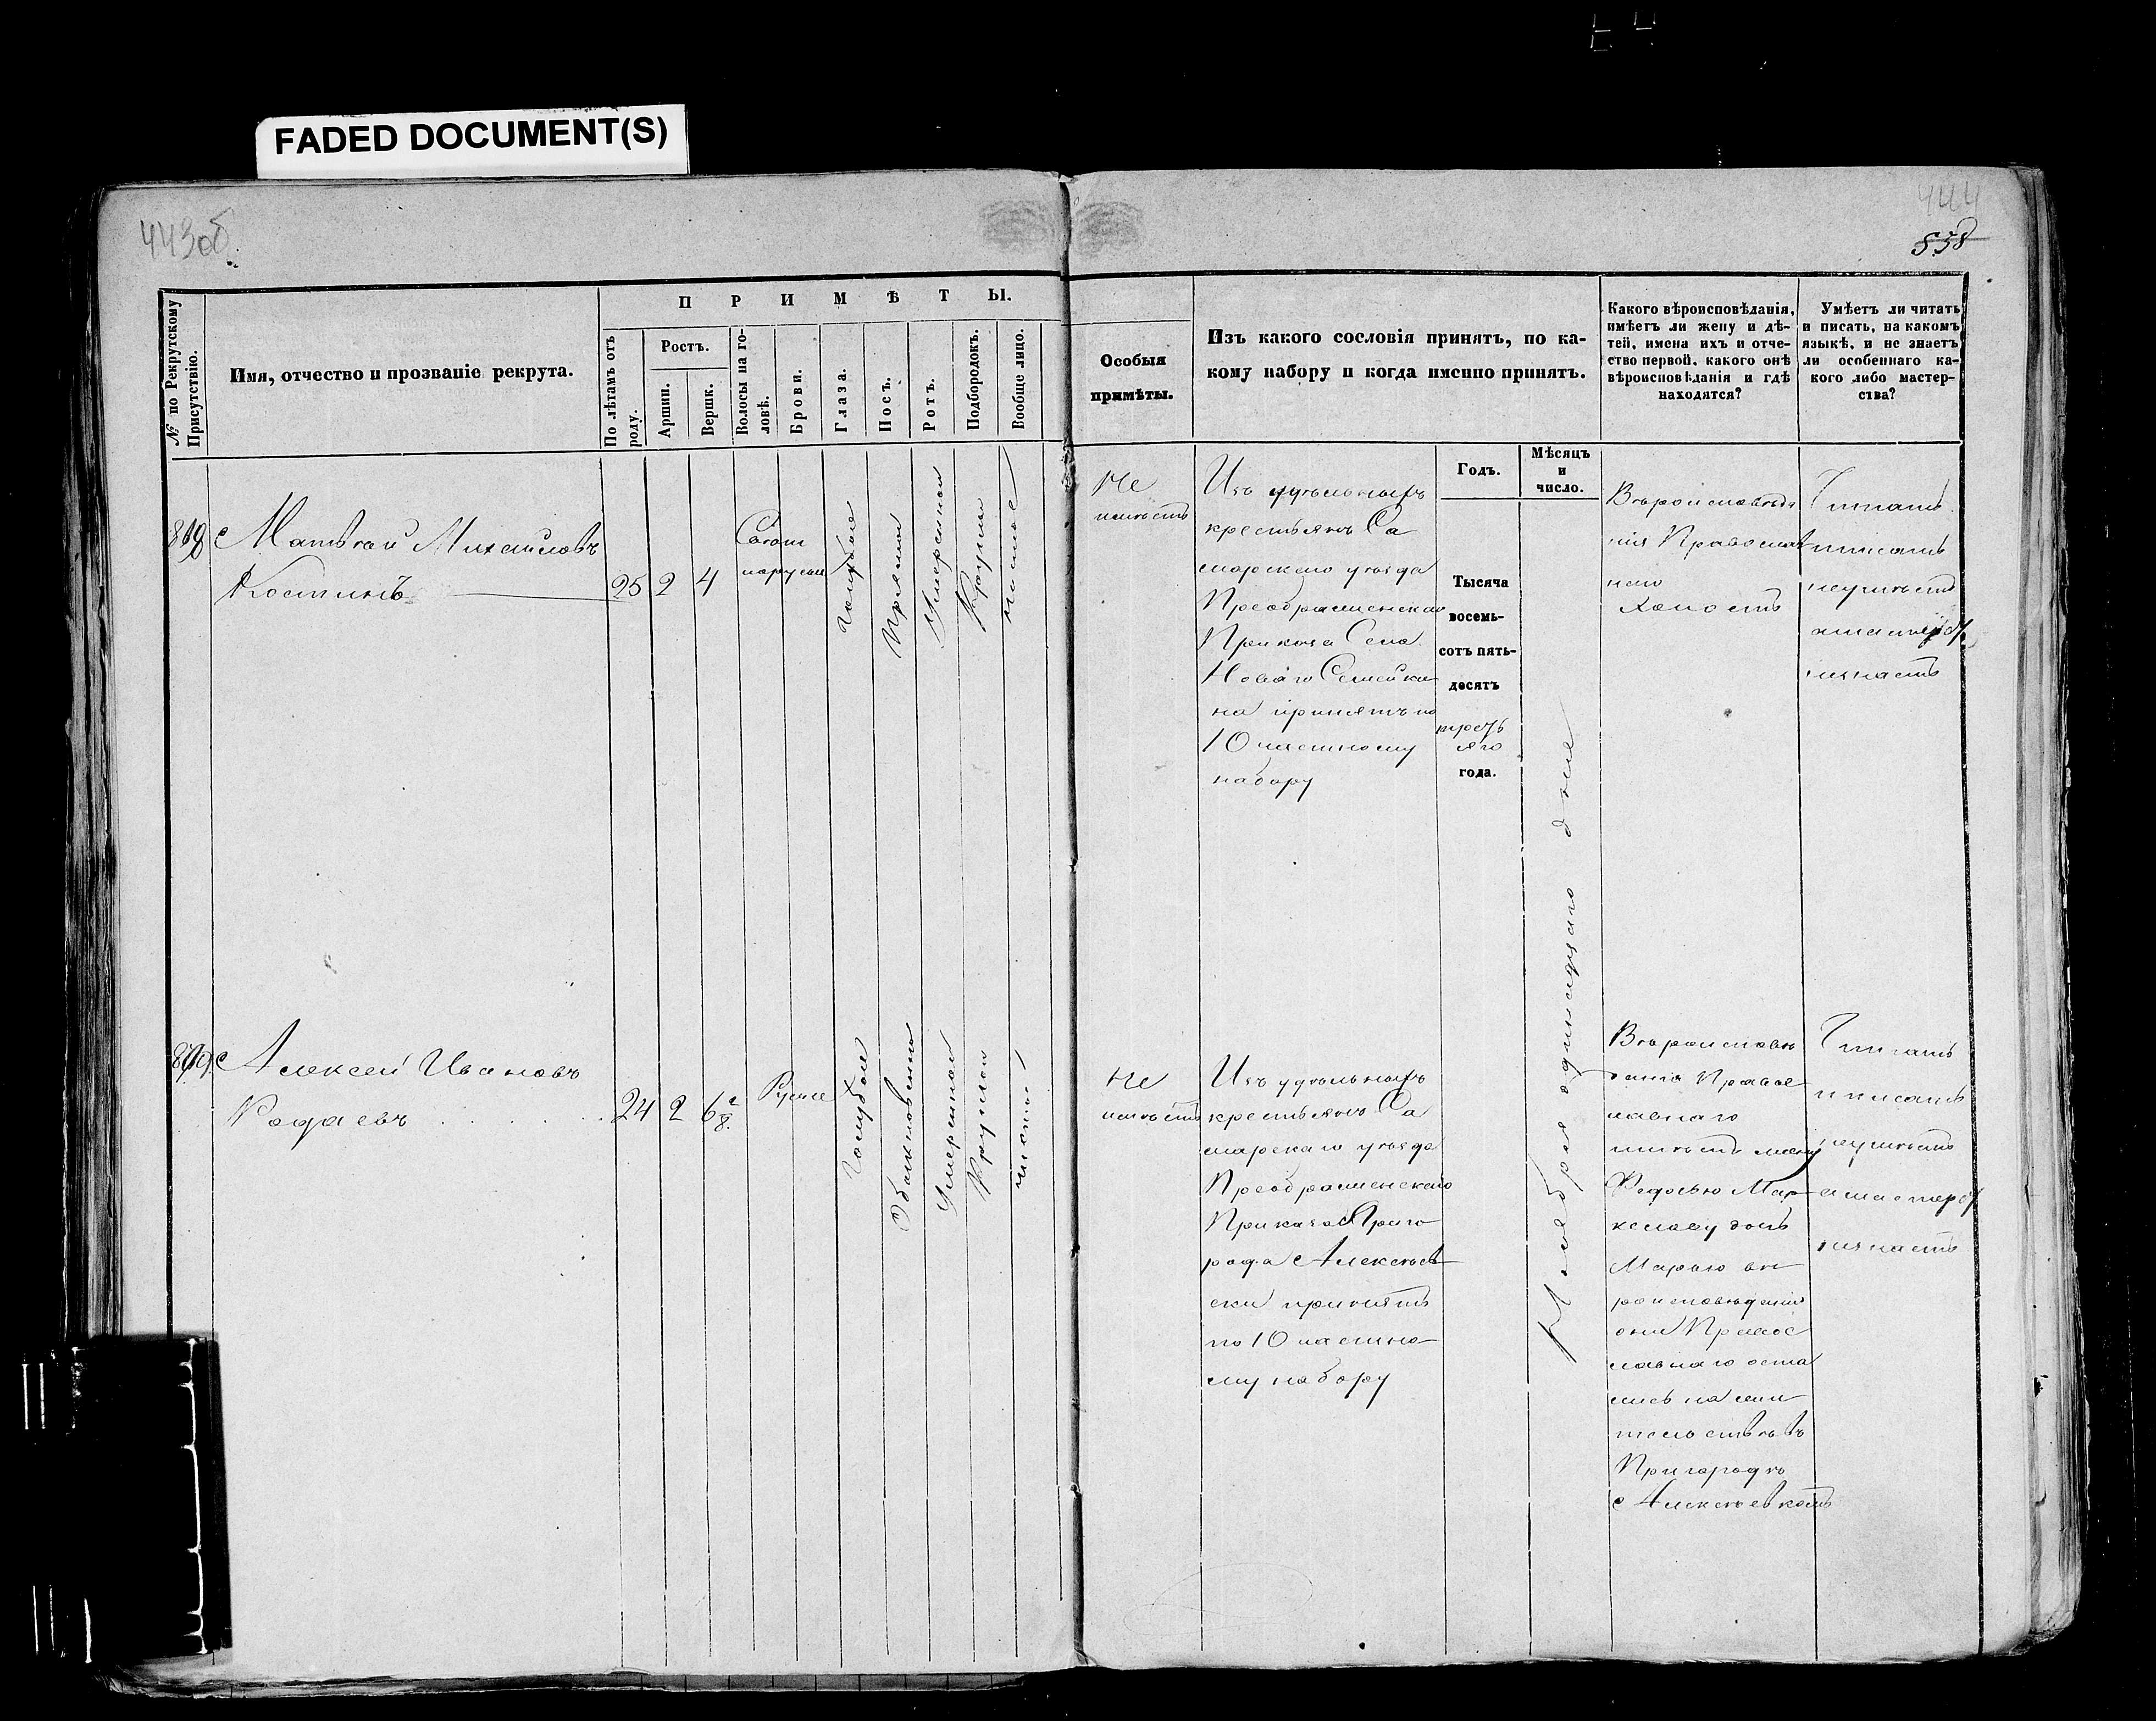 FADED DOCUMENT(S)
443об.
444
858
№ по Рекрутскому Присутствію.
Имя, отчество и прозваніе рекрута.
ПРИМѢТЫ.
По лѣтамъ отъ роду.
Ростъ.
Аршин.
Вершк.
Волосы на головѣ.
Брови.
Глаза.
Носъ.
Ротъ.
Подбородокъ.
Вообще лицо.
Особыя
примѣты.
Изъ какого сословія принятъ, по ка-
кому набору и когда именно принятъ.
Какого вѣроисповѣданія,
имѣетъ ли жену и дѣ-
тей, имена ихъ и отче-
ство первой, какого онѣ
вѣроисповѣданія и гдѣ
находятся?
Умѣетъ ли читать
и писать, на какомъ
языкѣ, и не знаетъ
ли особеннаго ка-
кого либо мастер-
ства?
Годъ.
Мѣсяцъ
и
число.
Матвѣй Михайловъ
Костинъ
25 2 4
Голубые
Прямой
Умеренный
Круглый
чистое
Не
имѣетъ
Изъ удѣльныхъ
крестьянъ Са
марскаго уѣзда
Преображенскаго
Приказа Села
Новаго Семейки
на принятъ по
10 частному
набору
Тысяча
восемь-
сотъ пять-
десятъ
треть
яго
года.
Ноября одинадцаго дня
Вѣроисповѣда
нія Православ
наго
Холостъ
Читать
и писать
неумѣетъ
а мастерст
незнаетъ
819
Алексей Ивановъ
Родаевъ
24 2 6 2/8.
Русые
Голубые
Обыкновенный
Умеренной
Круглой
чистое
Не
имѣетъ
Изъ удѣльныхъ
крестьянъ Са
марскаго уѣзда
Преображенскаго
Приказа Приго
рода Алексѣев
ски принятъ
по 10 частно
му набору
Вѣроисповѣ
данія Правос
лавнаго
имѣетъ жену
Федосью Мар
келову дочь
Марью вѣ
роисповѣданія
они Правос
лавнаго оста
лись на жи
тельствѣ въ
Пригородкѣ
Алексѣевкомъ
Читать
и писать
неумѣетъ
а мастерст
незнаетъ